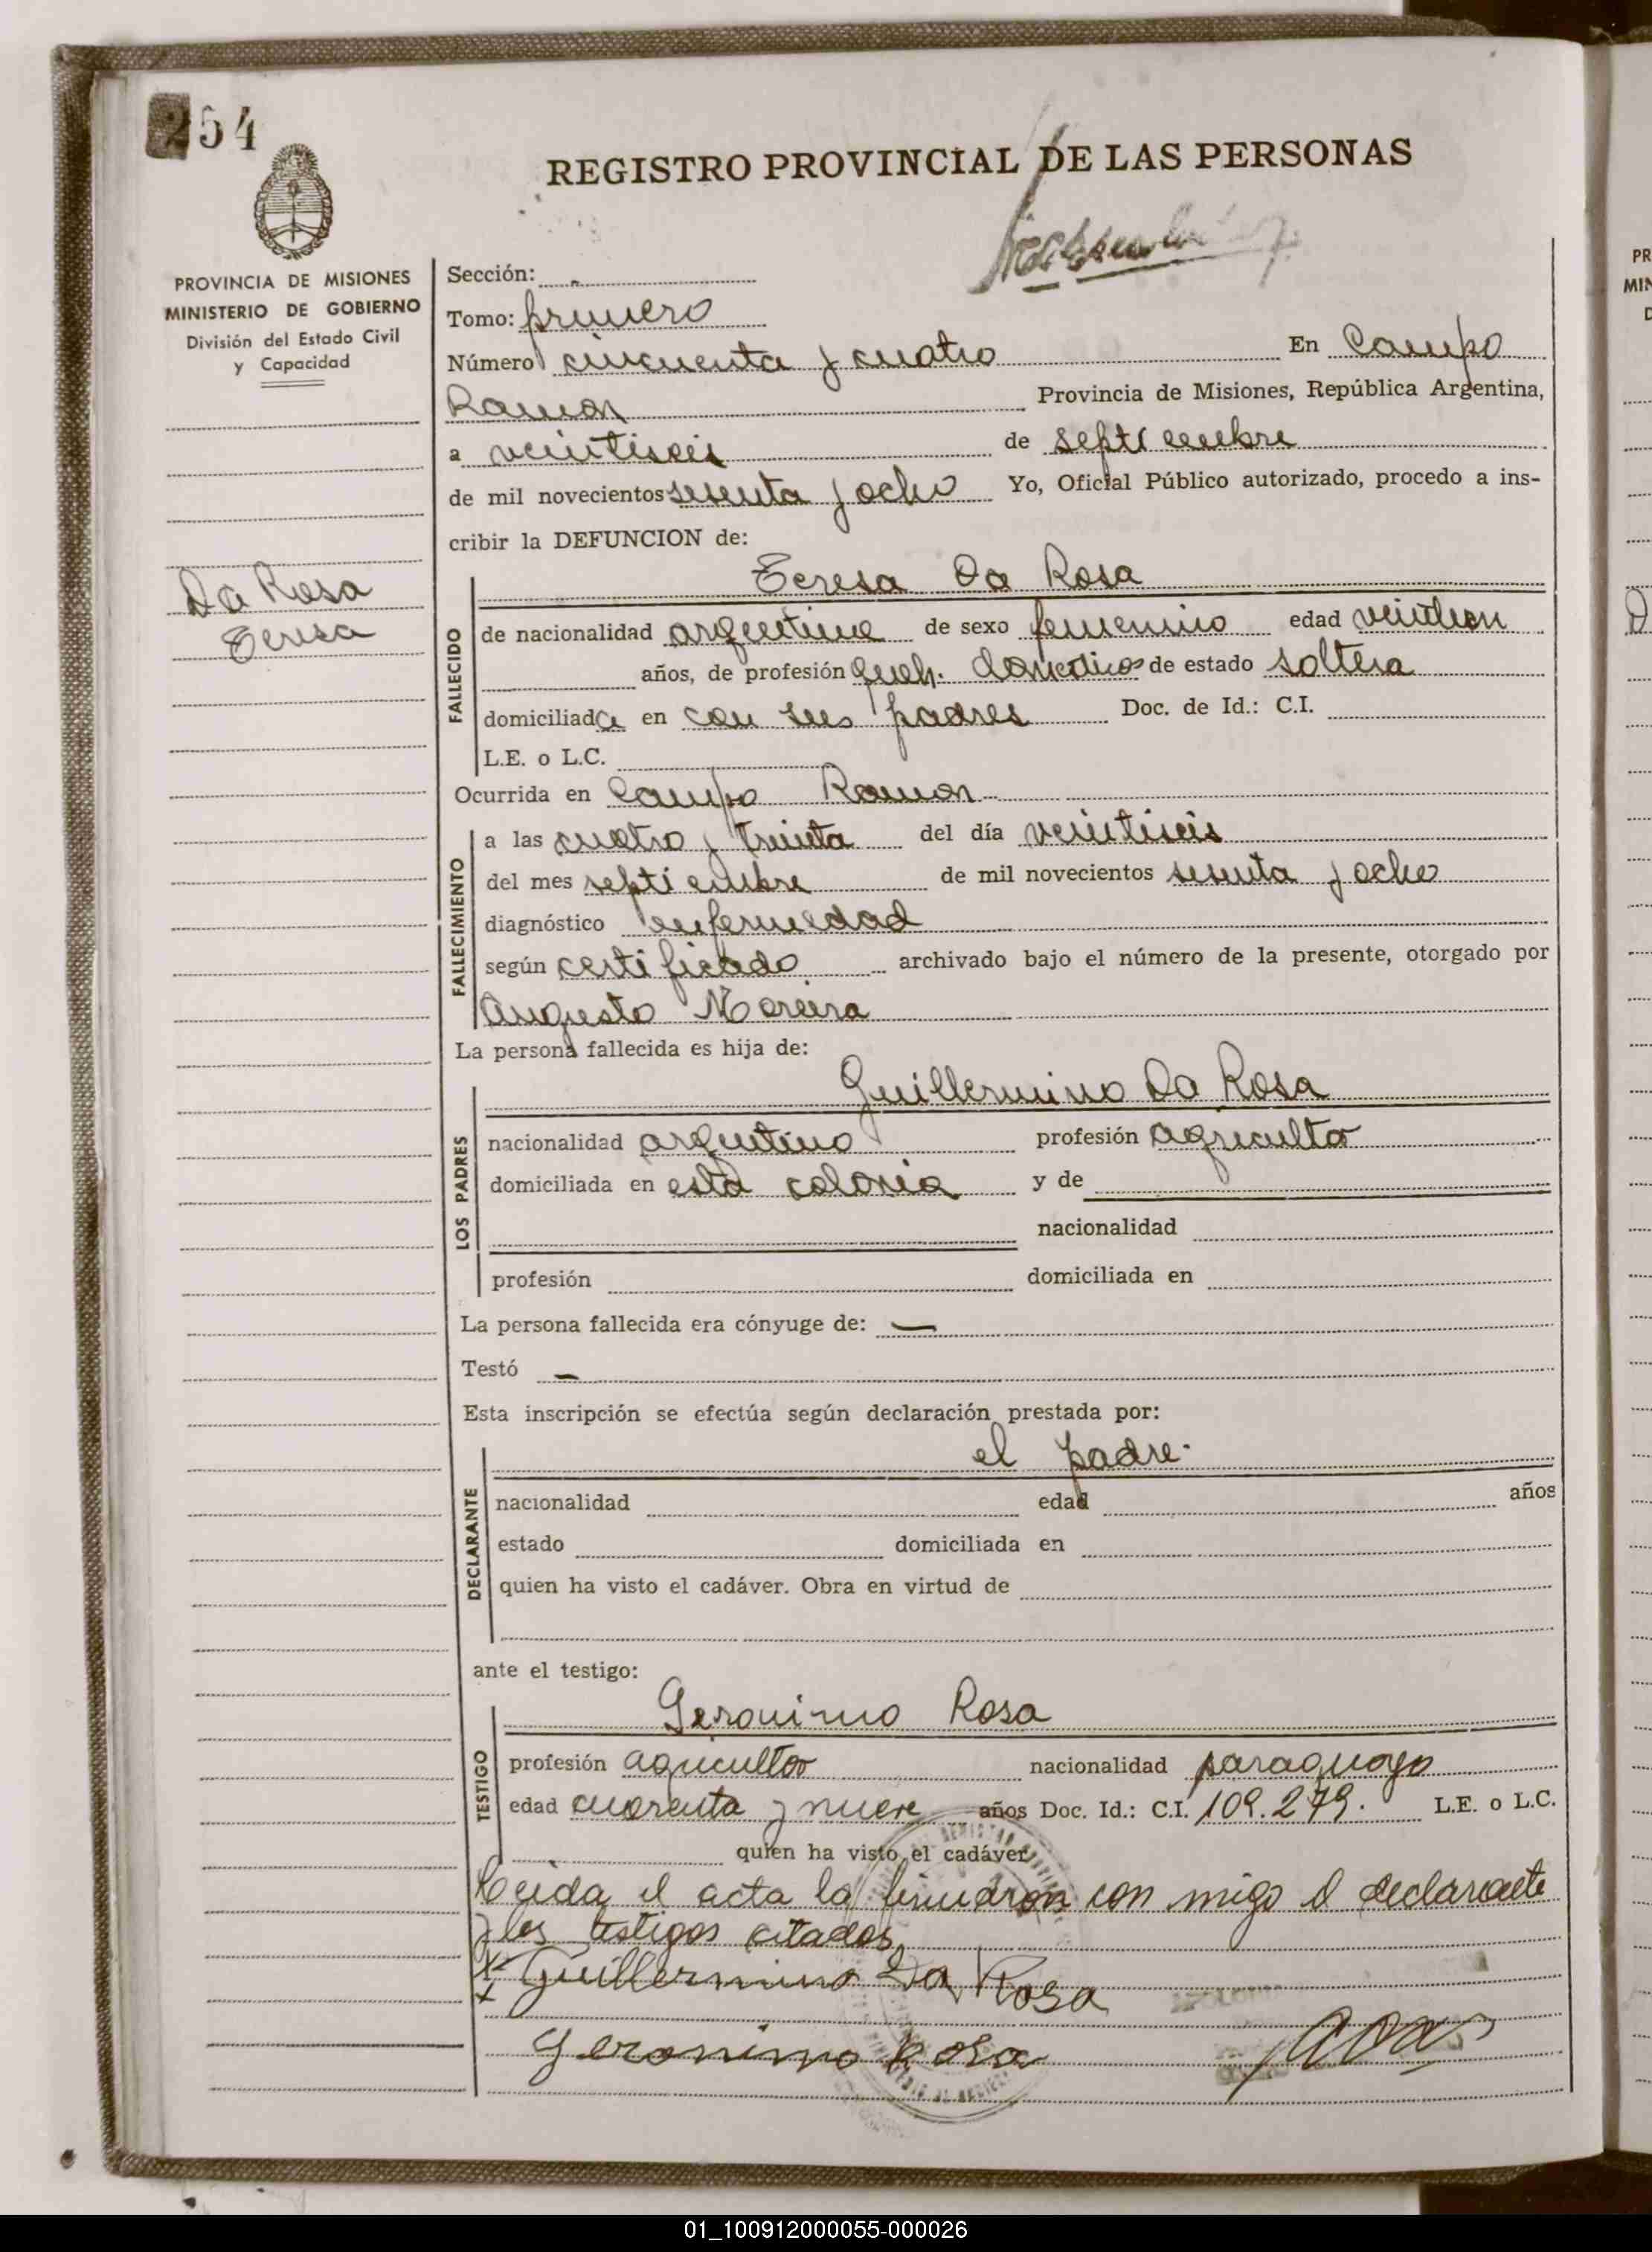 254
REGISTRO PROVINCIAL DE LAS PERSONAS
PROVINCIA DE MISIONES
MINISTERIO DE GOBIERNO
División del Estado Civil
y Capacidad
Da Rosa
Teresa
Sección:
Tomo: primero
Número cincuenta y cuatro En Campo
Ramon Provincia de Misiones, República Argentina,
a veintiseis de septiembre
de mil novecientos sesenta y ocho Yo, Oficial Público autorizado, procedo a ins-
cribir la DEFUNCION de:
FALLECIDO
Teresa Da Rosa
de nacionalidad argentina de sexo femenino edad
años, de profesión queh. domesticos de estado soltera
domiciliada en con sus padres Doc. de Id.: C.I.
L.E. o L.C.
Ocurrida en Campo Ramon
FALLECIMIENTO
a las cuatro y treinta del día veintiseis
del mes septiembre de mil novecientos sesenta y ocho
diagnóstico enfermedad
según certificado archivado bajo el número de la presente, otorgado por
Augusto Moreira
La persona fallecida es hija de:
LOS PADRES
Guillermino Da Rosa
nacionalidad argentino profesión agricultor
domiciliada en esta colonia y de
nacionalidad
profesión domiciliada en
La persona fallecida era cónyuge de: —
Testó —
Esta inscripción se efectúa según declaración prestada por:
DECLARANTE
el padre.
nacionalidad edad años
estado domiciliada en
quien ha visto el cadáver. Obra en virtud de
ante el testigo:
TESTIGO
Geronimo Rosa
profesión agricultor nacionalidad paraguayo
edad cuarenta y nueve años Doc. Id.: C.I. 109.279. L.E. o L.C.
quien ha visto el cadáver
Leida el acta la firmaron con migo el declarante
y los testigos citados
Guillermino Da Rosa
Geronimo Rosa
01_100912000055-000026